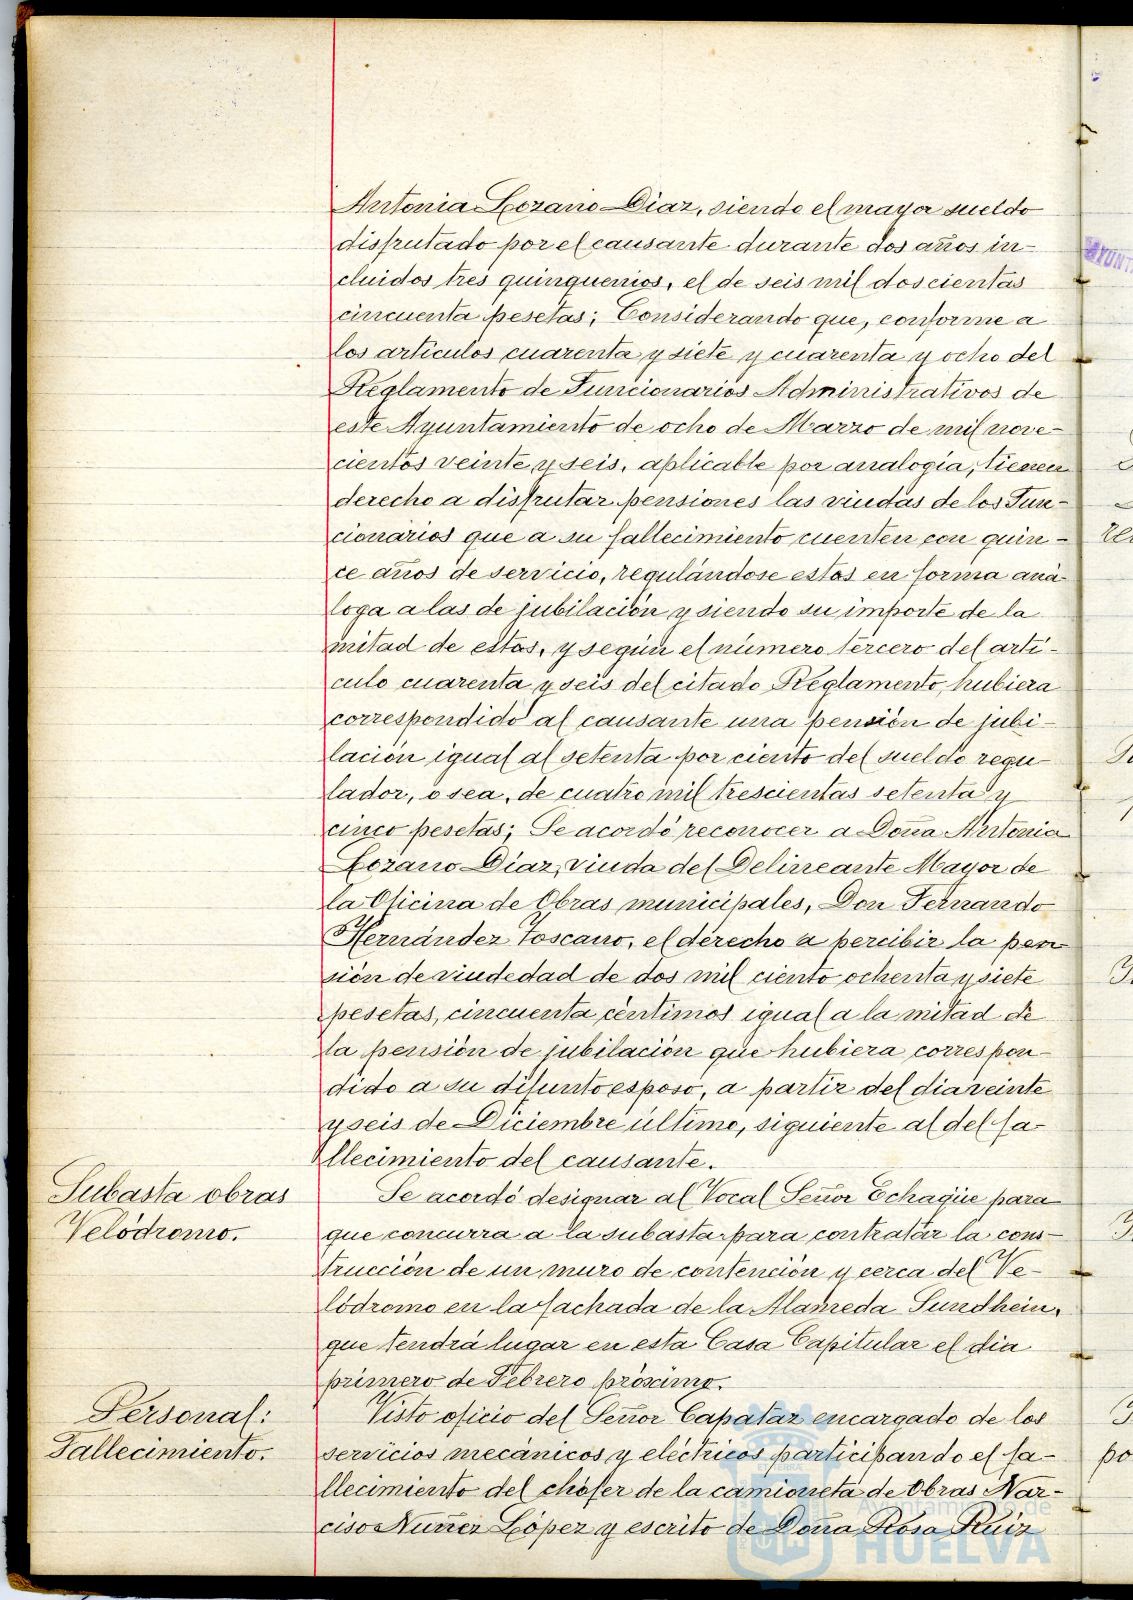 Antonia Lozano Diaz, siendo el mayor sueldo
disfrutado por el causante durante dos años in-
cluidos tres quinquenios, el de seis mil doscientas
cincuenta pesetas; Considerando que, conforme a
los artículos cuarenta y siete y cuarenta y ocho del
Reglamento de Funcionarios Administrativos de
este Ayuntamiento de ocho de Marzo de mil nove-
cientos veinte y seis, aplicable por analogía, tienen
derecho a disfrutar pensiones las viudas de los Fun-
cionarios que a su fallecimiento cuenten con quin-
ce años de servicio, regulándose estas en forma aná-
loga a las de jubilación y siendo su importe de la
mitad de estas, y según el número tercero del artí-
culo cuarenta y seis del citado Reglamento, hubiera
correspondido al causante una pensión de jubi-
lación igual al setenta por ciento del sueldo regu-
lador, o sea, de cuatro mil trescientas setenta y
cinco pesetas; Se acordó reconocer a Doña Antonia
Lozano Diaz, viuda del Delineante Mayor de
la Oficina de Obras municipales, Don Fernando
Hernández Toscano, el derecho a percibir la pen-
sión de viudedad de dos mil ciento ochenta y siete
pesetas, cincuenta céntimos igual a la mitad de
la pensión de jubilación que hubiera correspon-
dido a su difunto esposo, a partir del dia veinte
y seis de Diciembre último, siguiente al del fa-
llecimiento del causante.
Subasta obras
Velódromo.
Se acordó designar al Vocal Señor Echagüe para
que concurra a la subasta para contratar la cons-
trucción de un muro de contención y cerca del Ve-
lódromo en la fachada de la Alameda Sundhein,
que tendrá lugar en esta Casa Capitular el dia
primero de Febrero próximo.
Personal:
Fallecimiento.
Visto oficio del Señor Capataz encargado de los
servicios mecánicos y eléctricos participando el fa-
llecimiento del chófer de la camioneta de Obras Nar-
ciso Nuñez López y escrito de Doña Rosa Ruiz
Ayuntamiento de
HUELVA